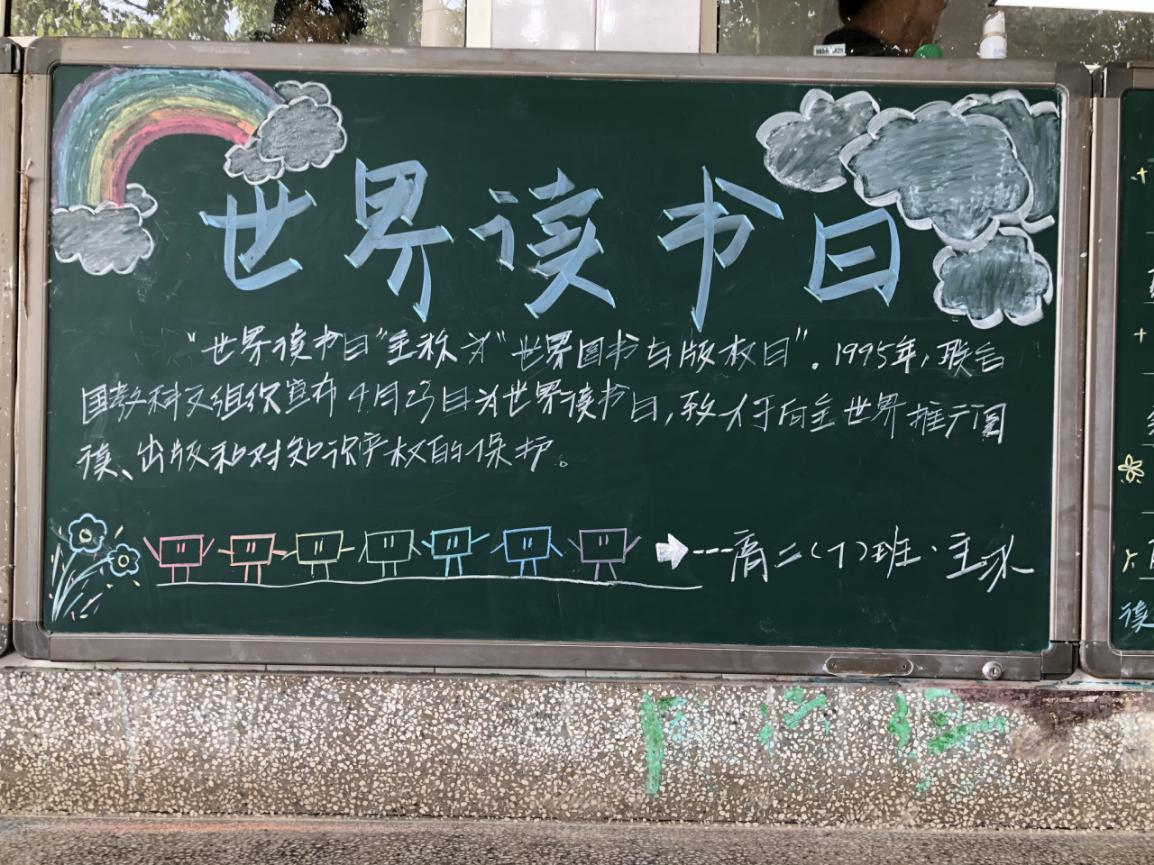 世界读书日
"世界读书日"全称为"世界图书与版权日"。1995年,联合
国教科文组织宣布4月23日为世界读书日,致力于向全世界推广阅
读、出版和对知识产权的保护。
---高二(7)班·主承
读